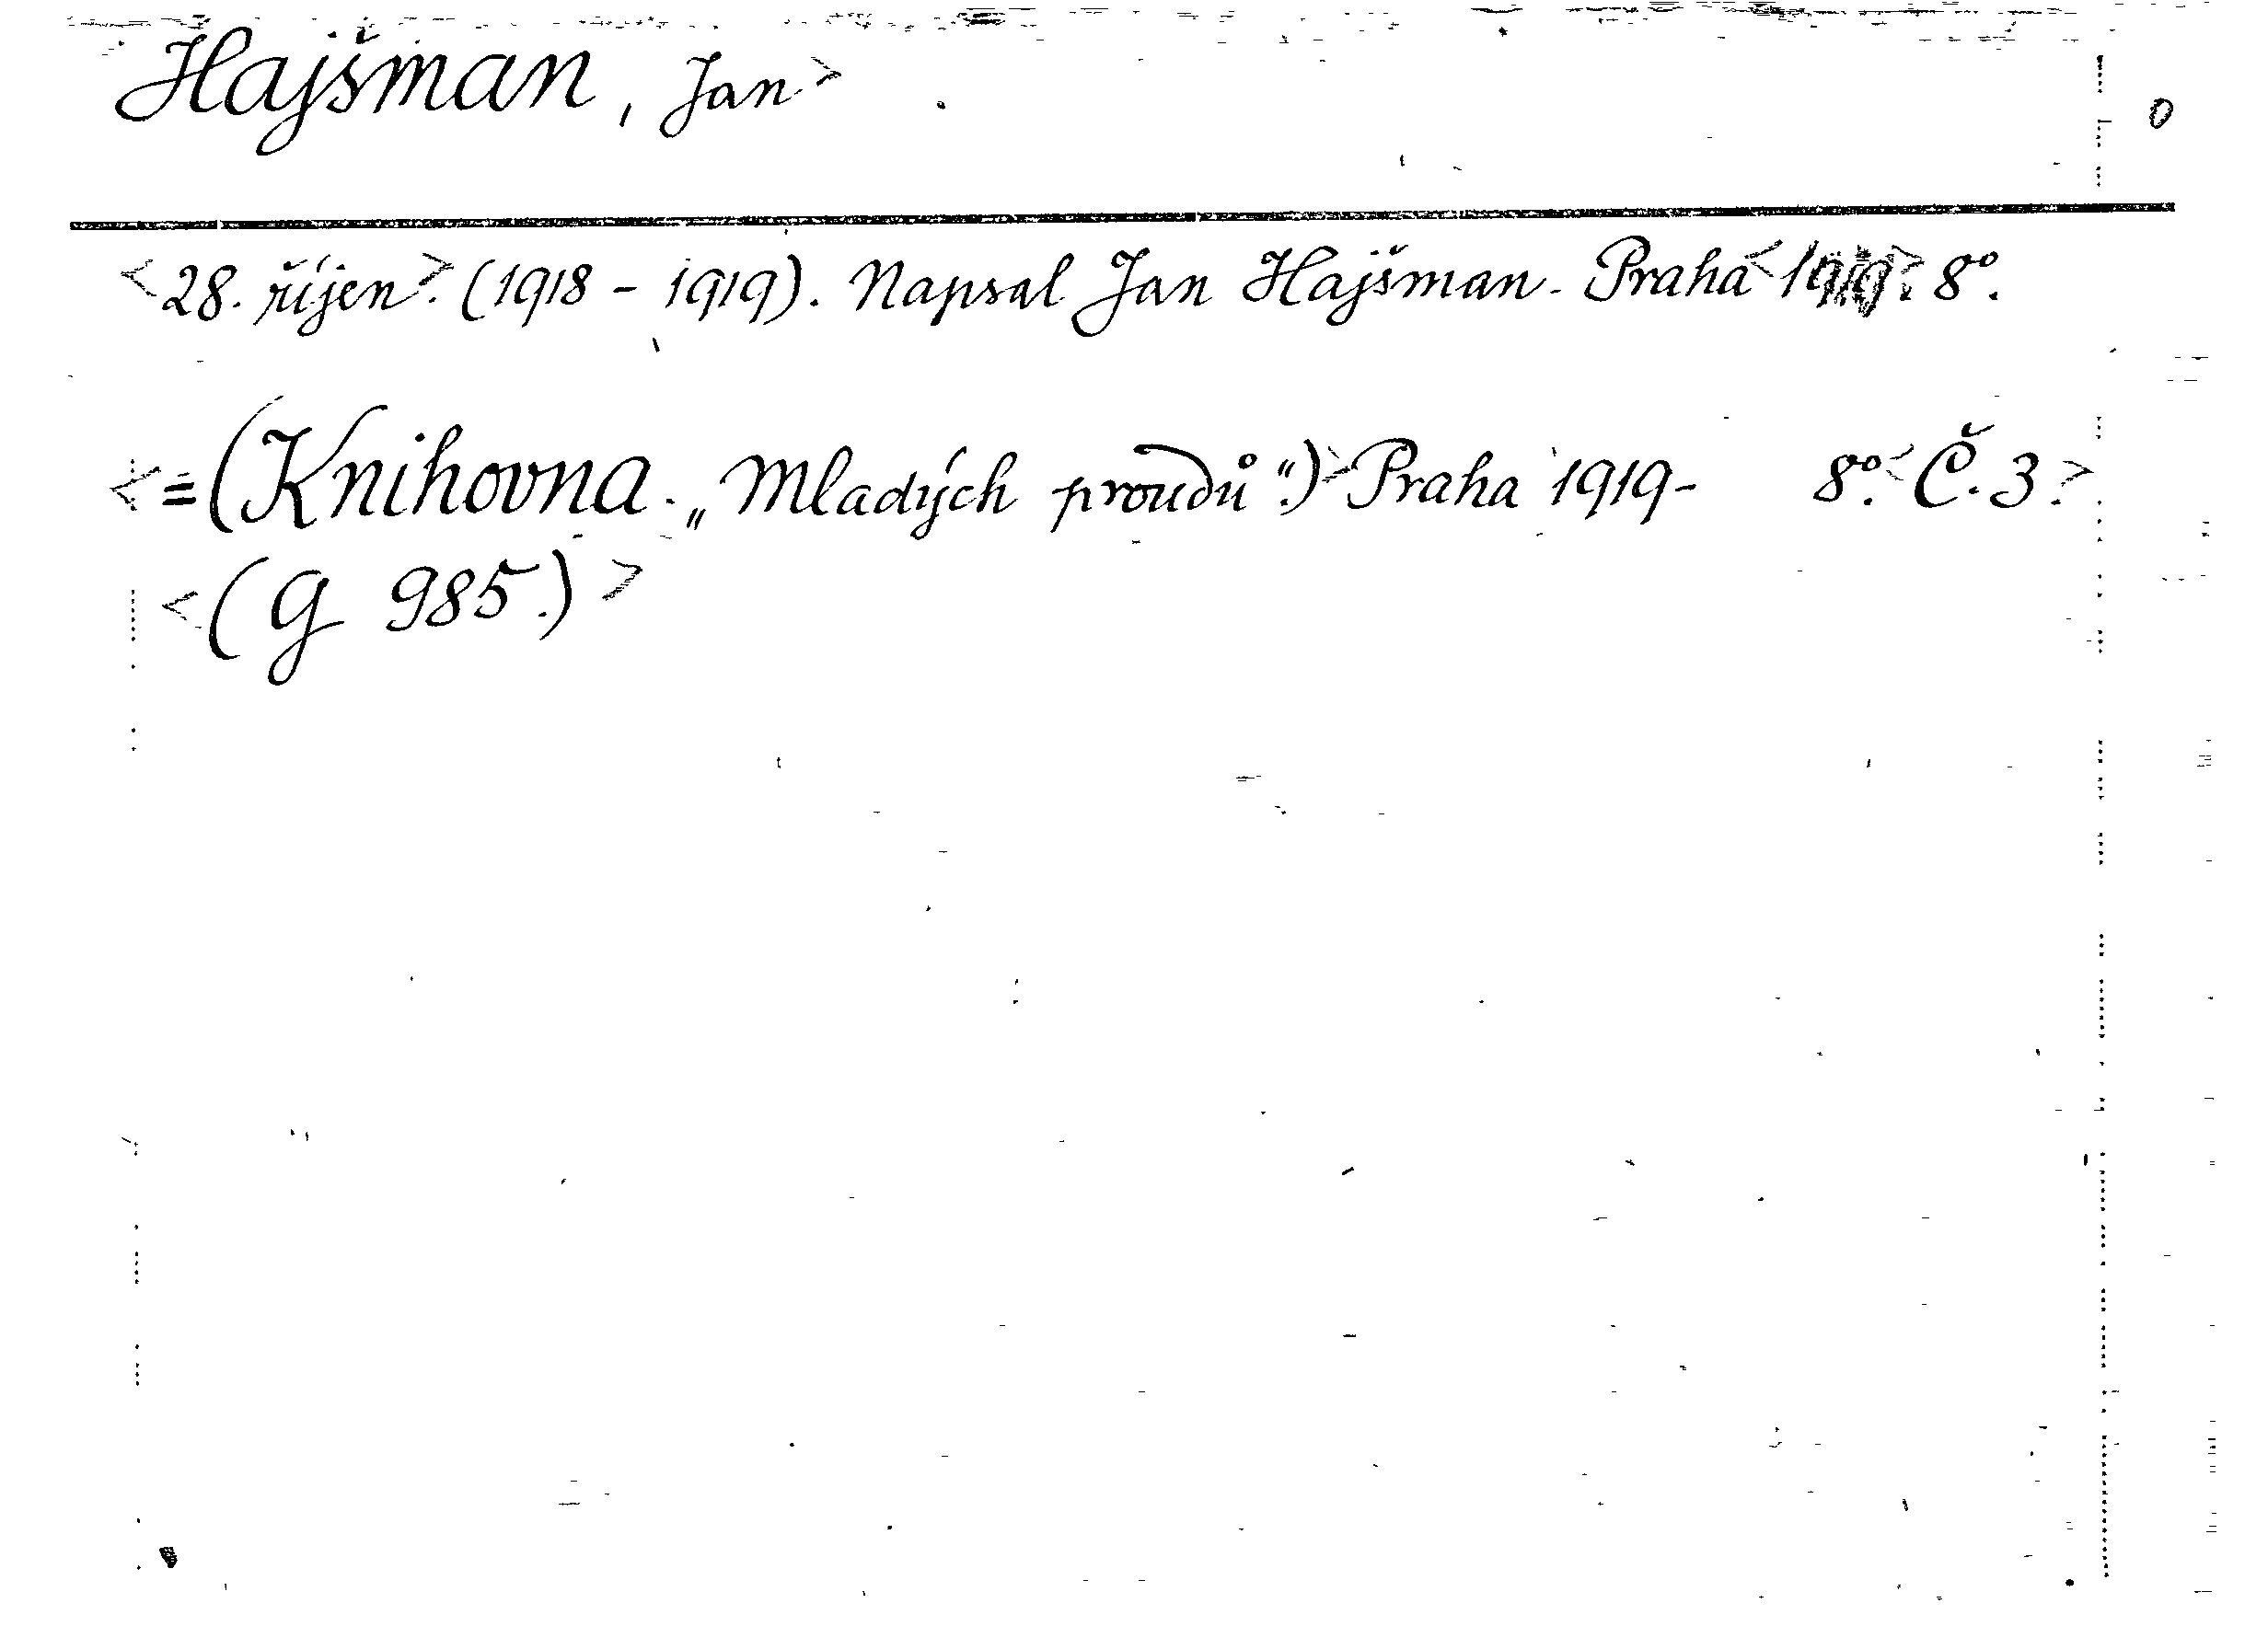 Hajšman, Jan>
0
<28. říjen>. (1918 - 1919). Napsal Jan Hajšman. Praha <1919>. 8°.
<=(Knihovna „Mladých proudů“.)> Praha 1919- 8°. <Č. 3.>
<(G 985.)>